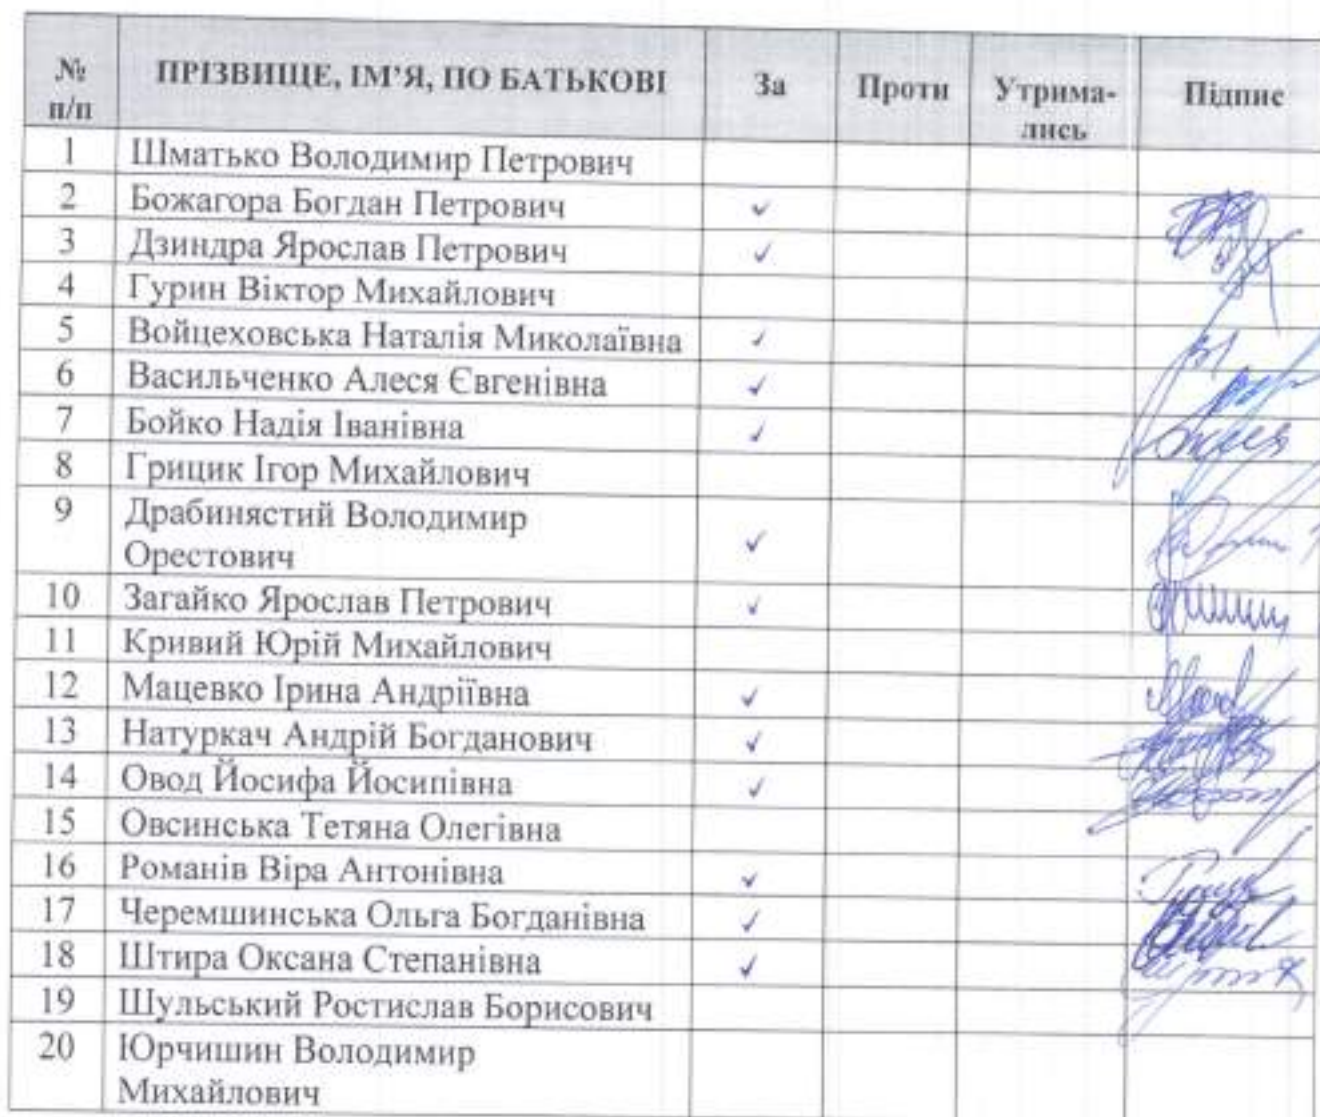 № ПРІЗВИЩЕ, ІМ’Я, ПО БАТЬКОВІ За Проти Утрима- Підпис
п/п лись
1 Шматько Володимир Петрович
2 Божагора Богдан Петрович ✓
3 Дзиндра Ярослав Петрович ✓
4 Гурин Віктор Михайлович
5 Войцеховська Наталія Миколаївна ✓
6 Васильченко Алеся Євгенівна ✓
7 Бойко Надія Іванівна ✓
8 Грицик Ігор Михайлович
9 Драбинястий Володимир
Орестович ✓
10 Загайко Ярослав Петрович ✓
11 Кривий Юрій Михайлович
12 Мацевко Ірина Андріївна ✓
13 Натуркач Андрій Богданович ✓
14 Овод Йосифа Йосипівна ✓
15 Овсинська Тетяна Олегівна
16 Романів Віра Антонівна ✓
17 Черемшинська Ольга Богданівна ✓
18 Штира Оксана Степанівна ✓
19 Шульський Ростислав Борисович
20 Юрчишин Володимир
Михайлович